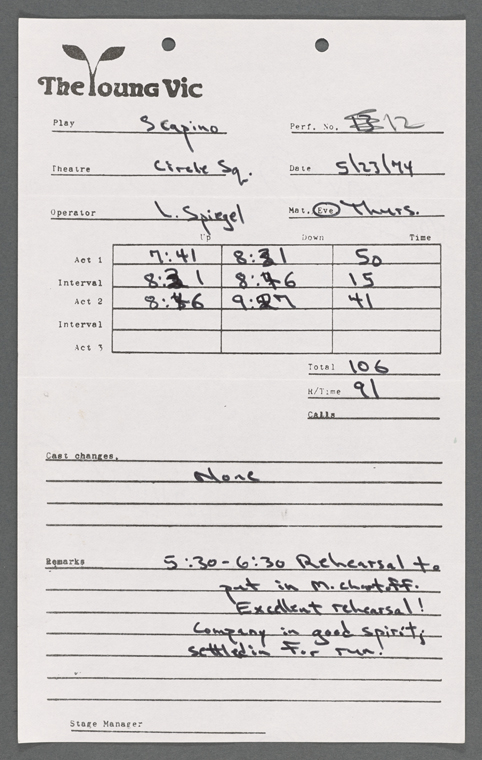 The Young Vic
Play Scapino Perf. No. 12
Theatre Circle Sq. Date 5/23/74
Operator L. Spiegel Mat. Eve Thurs.
Up Down Time
Act 1 7:41 8:31 50
Interval 8:31 8:46 15
Act 2 8:46 9:27 41
Interval
Act 3
Total 106
R/Time 91
Calls
Cast changes.
None
Remarks 5:30-6:30 Rehearsal to
put in M. chatoff.
Excellent rehearsal!
Company in good spirits
settled in for run!
Stage Manager